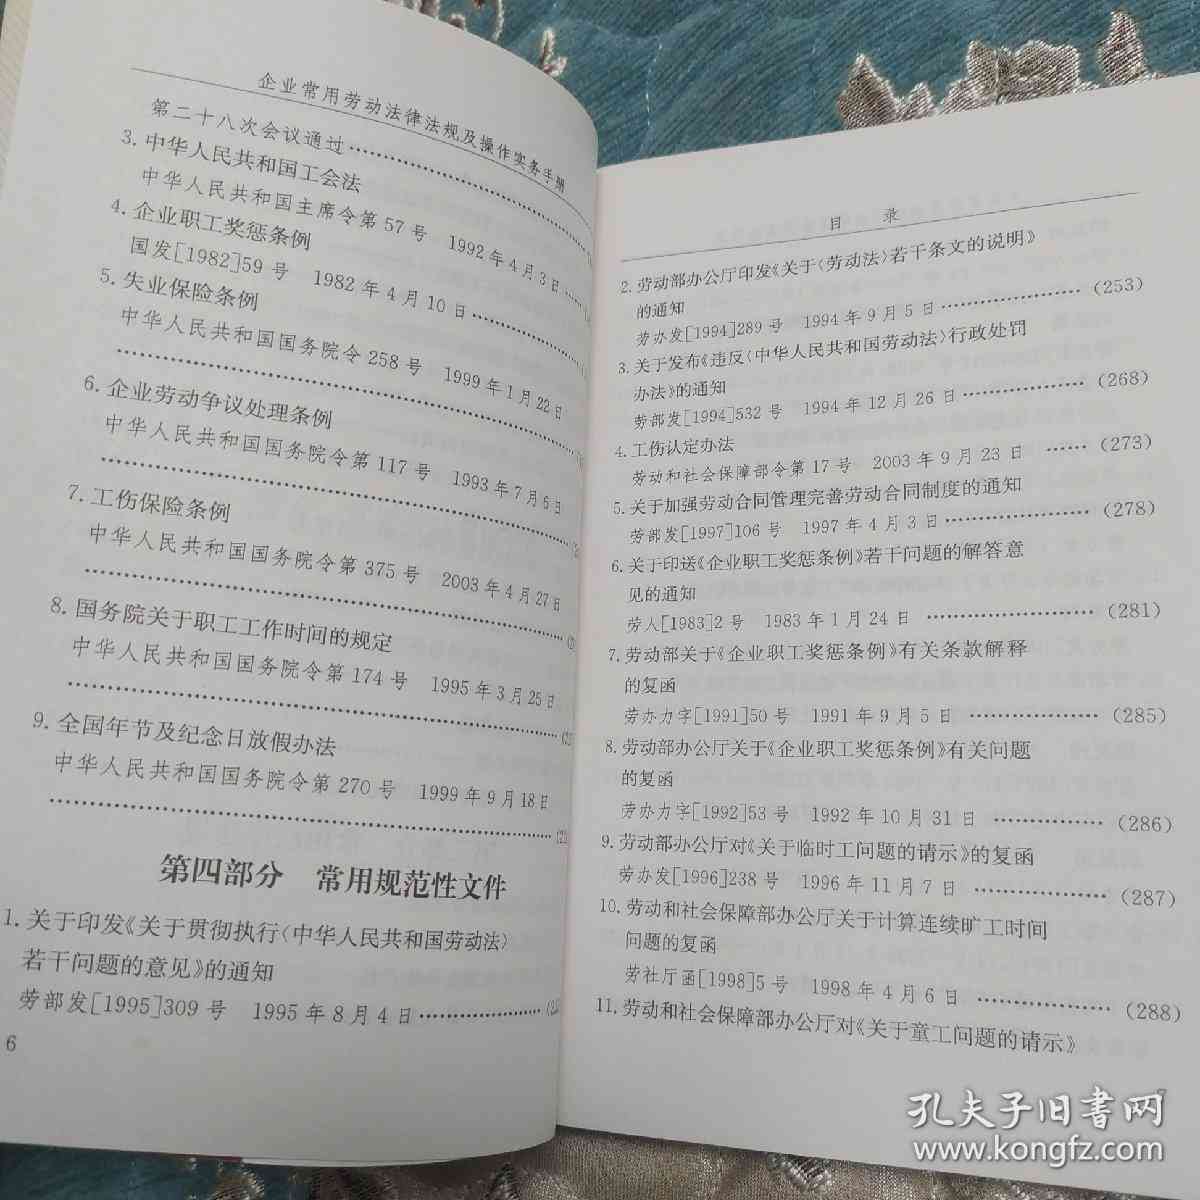 企业常用劳动法律法规及操作实务手册
第二十八次会议通过
3. 中华人民共和国工会法
中华人民共和国主席令第57号 1992年4月3日
4. 企业职工奖惩条例
国发[1982]59号 1982年4月10日
5. 失业保险条例
中华人民共和国国务院令258号 1999年1月22日
6. 企业劳动争议处理条例
中华人民共和国国务院令第117号 1993年7月6日
7. 工伤保险条例
中华人民共和国国务院令第375号 2003年4月27日
8. 国务院关于职工工作时间的规定
中华人民共和国国务院令第174号 1995年3月25日
9. 全国年节及纪念日放假办法
中华人民共和国国务院令第270号 1999年9月18日
第四部分 常用规范性文件
1. 关于印发《关于贯彻执行〈中华人民共和国劳动法〉
若干问题的意见》的通知
劳部发[1995]309号 1995年8月4日
6
目 录
2. 劳动部办公厅印发《关于〈劳动法〉若干条文的说明》
的通知
劳办发[1994]289号 1994年9月5日 (253)
3. 关于发布《违反〈中华人民共和国劳动法〉行政处罚
办法》的通知
劳部发[1994]532号 1994年12月26日 (268)
4. 工伤认定办法
劳动和社会保障部令第17号 2003年9月23日 (273)
5. 关于加强劳动合同管理完善劳动合同制度的通知
劳部发[1997]106号 1997年4月3日 (278)
6. 关于印送《企业职工奖惩条例》若干问题的解答意
见的通知
劳人[1983]2号 1983年1月24日 (281)
7. 劳动部关于《企业职工奖惩条例》有关条款解释
的复函
劳办力字[1991]50号 1991年9月5日 (285)
8. 劳动部办公厅关于《企业职工奖惩条例》有关问题
的复函
劳办力字[1992]53号 1992年10月31日 (286)
9. 劳动部办公厅对《关于临时工问题的请示》的复函
劳办发[1996]238号 1996年11月7日 (287)
10. 劳动和社会保障部办公厅关于计算连续旷工时间
问题的复函
劳社厅函[1998]5号 1998年4月6日 (288)
11. 劳动和社会保障部办公厅对《关于童工问题的请示》
孔夫子旧书网
www.kongfz.com